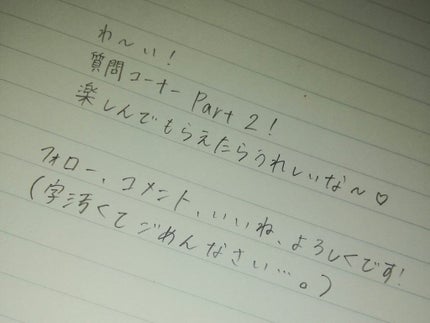 わ〜い!
質問コーナー Part 2!
楽しんでもらえたらうれしいな〜♡
フォロー、コメント、いいね、よろしくです!
(字汚くてごめんなさい…。)